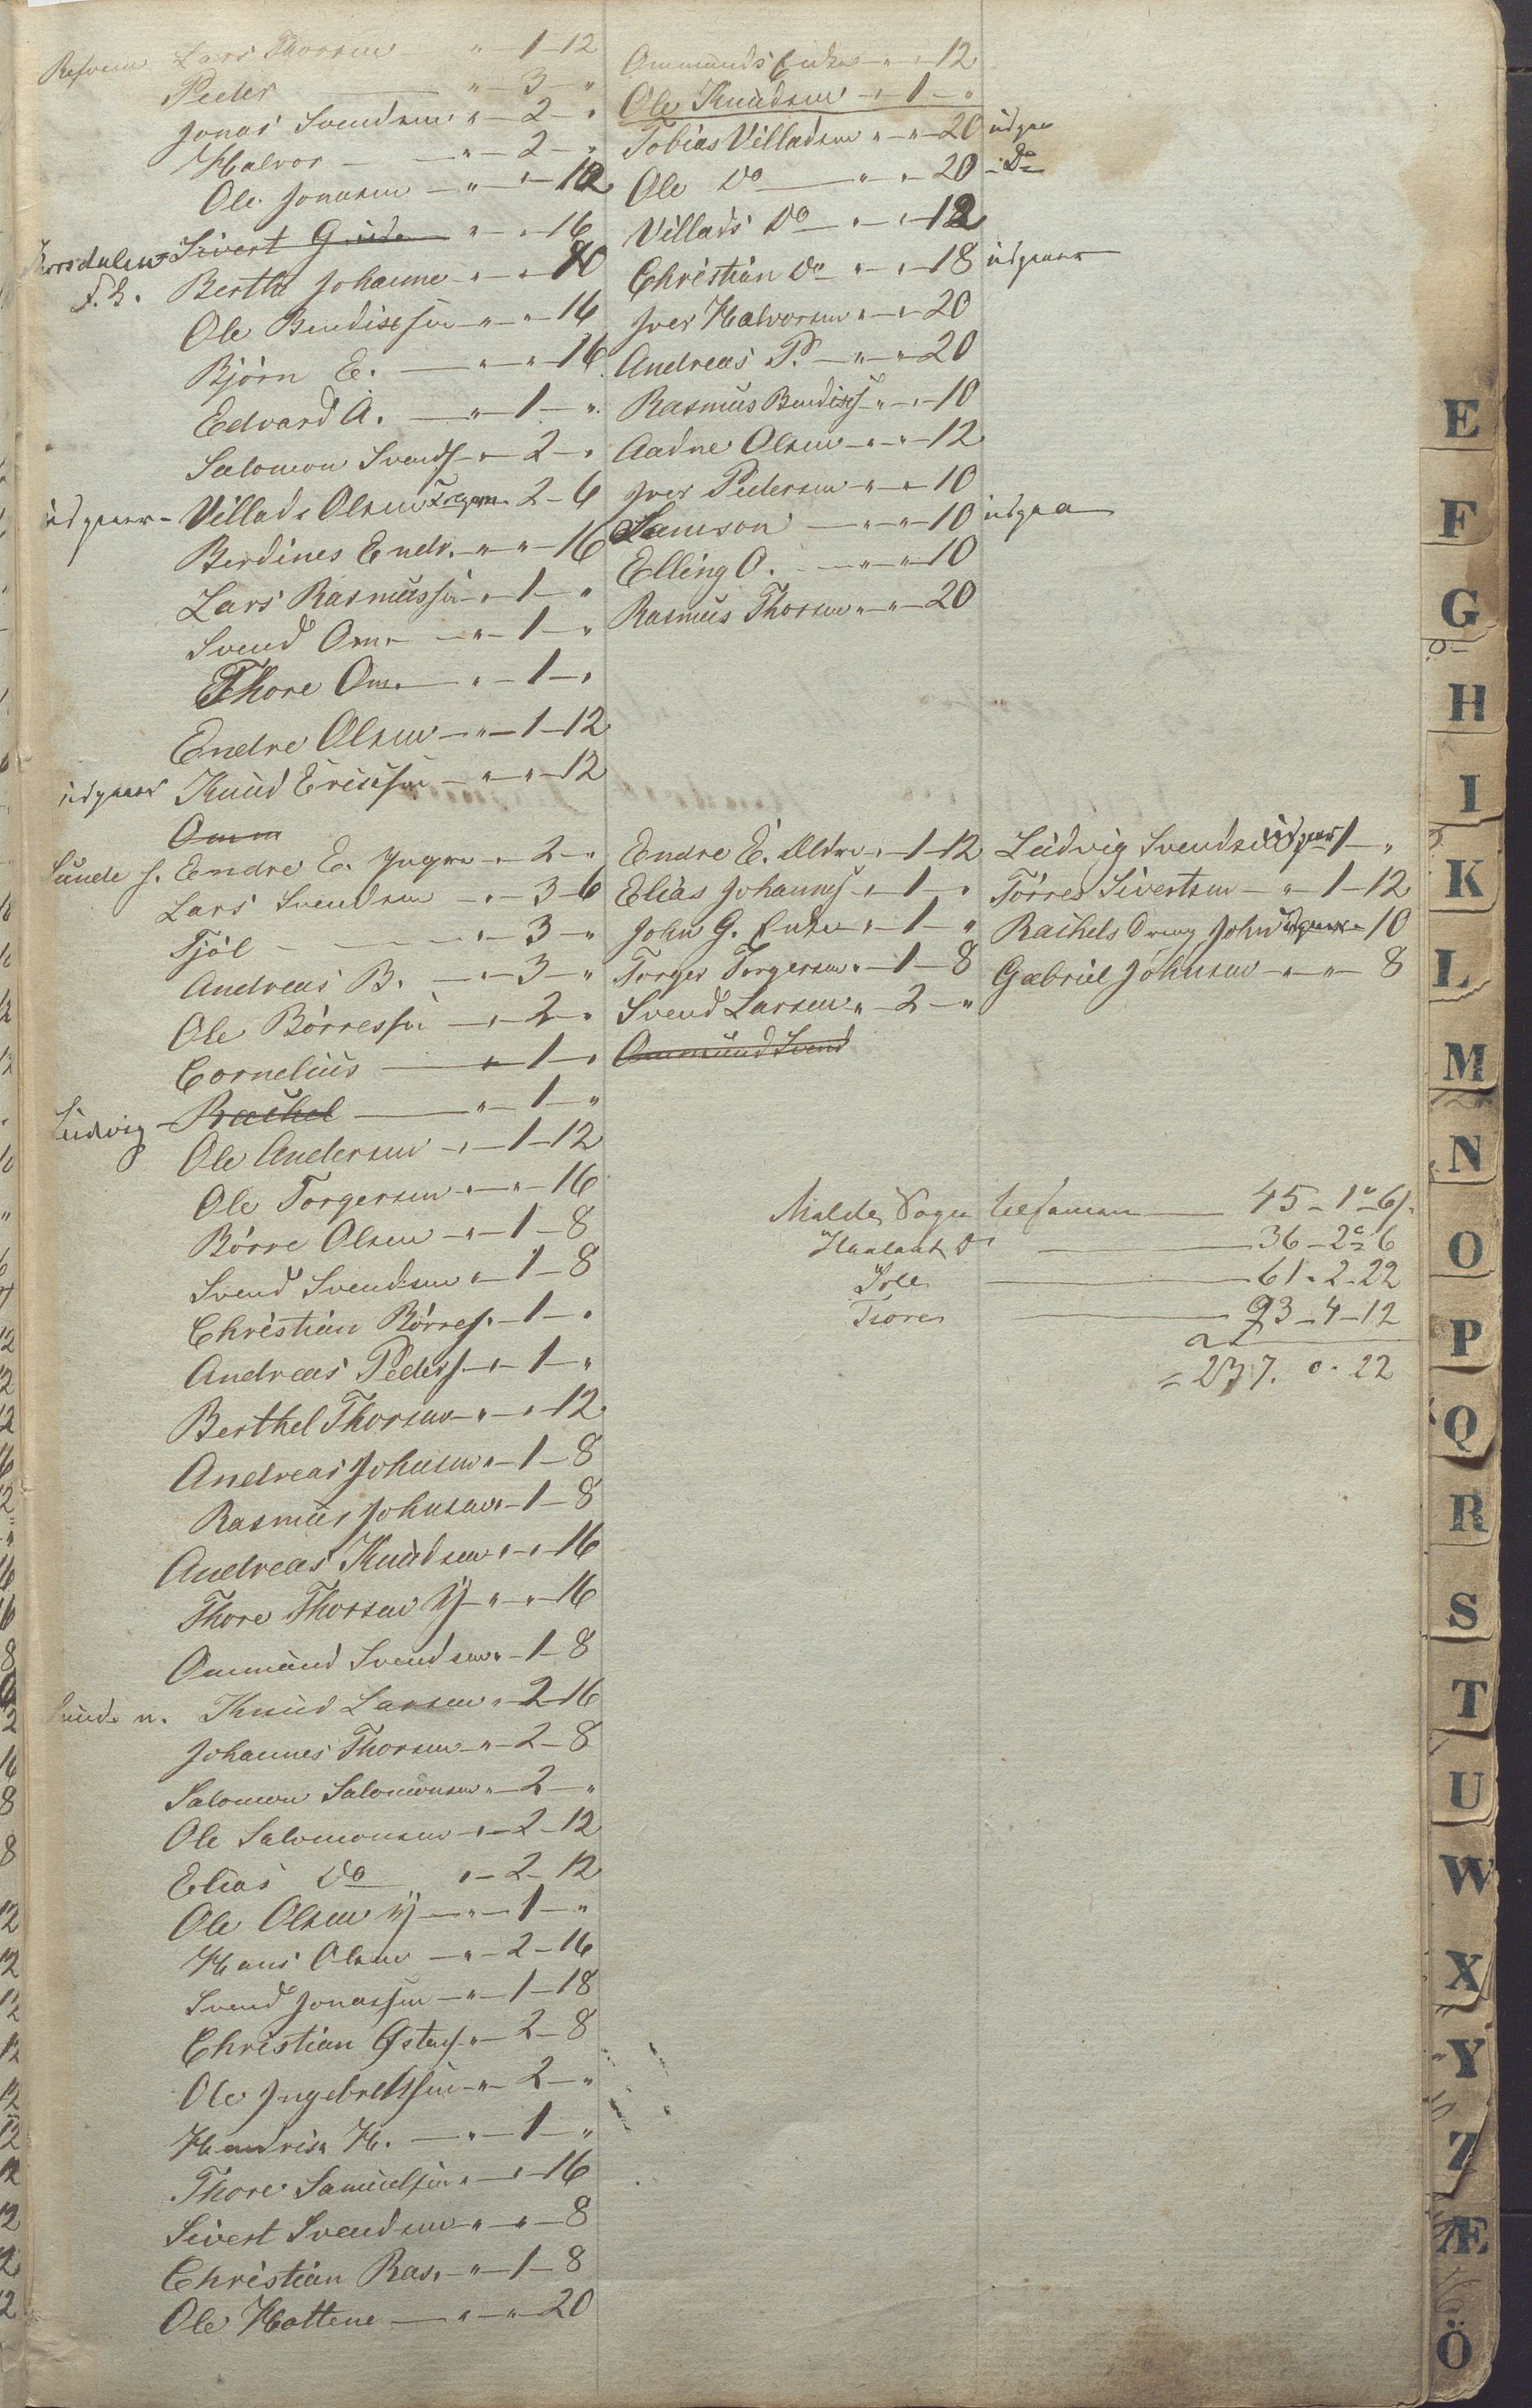 Lars Thorsen — " — 1 — 12
Peder — " — 3 — "
Jonas Svendsen " — 2 — "
Halvor — " — 2 — "
Ole Jonasen — " — " — 12
Sivert Gude " — " — 16
Bertha Johanne — " — " — 10
Ole Bendixsen — " — " — 16
Bjørn E. — " — " — 16
Edvard A. — " — 1 — "
Salomon Svends — " — 2 — "
udgaaer — Villads Olsen 2 — 6
Berdines Endr. — " — " — 16
Lars Rasmussen — " — 1 — "
Svend Om. — " — 1 — "
Thore Om. — " — 1 — "
Endre Olsen — " — 1 — 12
udgaaer Knud Ericksen — " — " — 12
Omm
Sunde s. Endre E. Yngre — " — 2 — "
Lars Svendsen — " — 3 — 6
Tjøl — " — 3 — "
Andreas B. — " — 3 — "
Ole Børresen — " — 2 — "
Cornelius — " — 1 — "
Ludvig — Rachel — " — 1 — "
Ole Andersen — " — 1 — 12
Ole Torgersen — " — " — 16
Børre Olsen — " — 1 — 8
Svend Svendsen " — 1 — 8
Christian Børres. — 1 — "
Andreas Peders. — " — 1 — "
Berthel Thorsen — " — " — 12
Andreas Johnsen " — 1 — 8
Rasmus Johnsen " — 1 — 8
Andreas Knudsen " — " — 16
Thore Thorsen Y — " — " — 16
Ommund Svendsen " — 1 — 8
Sunde n. Knud Larsen " — 2 — 16
Johannes Thorsen — " — 2 — 8
Salomon Salomonsen " — 2 — "
Ole Salomonsen — " — 2 — 12
Elias Do " — 2 — 12
Ole Olsen Y — " — 1 — "
Hans Olsen — " — 2 — 16
Svend Jonassen — " — 1 — 18
Christian Østens. " — 2 — 8
Ole Ingebretsen — " — 2 — "
Hendrik H. — " — 1 — "
Thore Samuelsen " — " — 16
Sivert Svendsen — " — " — 8
Christian Ras. — " — 1 — 8
Ole Hottene — " — " — 20
Ommunds Enke — " — " 12
Ole Knudsen — " — 1 — "
Tobias Villadsen " — " — 20 udgaa
Ole Do — " — " — 20 — Do
Villads Do " — " — 12
Christian Do " — " — 18 udgaaer
Iver Halvorsen " — " — 20
Andreas P. — " — " — 20
Rasmus Bendixs " — " — 10
Aadne Olsen — " — " — 12
Iver Pedersen — " — " — 10
Samson — " — " — 10 udgaa
Elling O. — " — " — 10
Rasmus Thorsen " — " — 20
Endre E. Ældre " — 1 — 12
Elias Johannes " — 1 — "
John G. Enke " — 1 — "
Torger Torgersen " — 1 — 8
Svend Larsen " — 2 — "
Ommund Svend
Ludvig Svendsen udgaar 1 — "
Tørres Sivertsen — " — 1 — 12
Rachels Dreng John udgaaer — 10
Gabriel Johnsen — " — " — 8
Malde Sogn tilsamen — 45 — 1 — 6
Haaland Do — 36 — 2 — 6
Sole — 61 — 2 — 22
Tiore — 93 — 4 — 12
= 237. 0. 22
E
F
G
H
I
K
L
M
N
O
P
Q
R
S
T
U
W
X
Y
Z
Æ
Ö